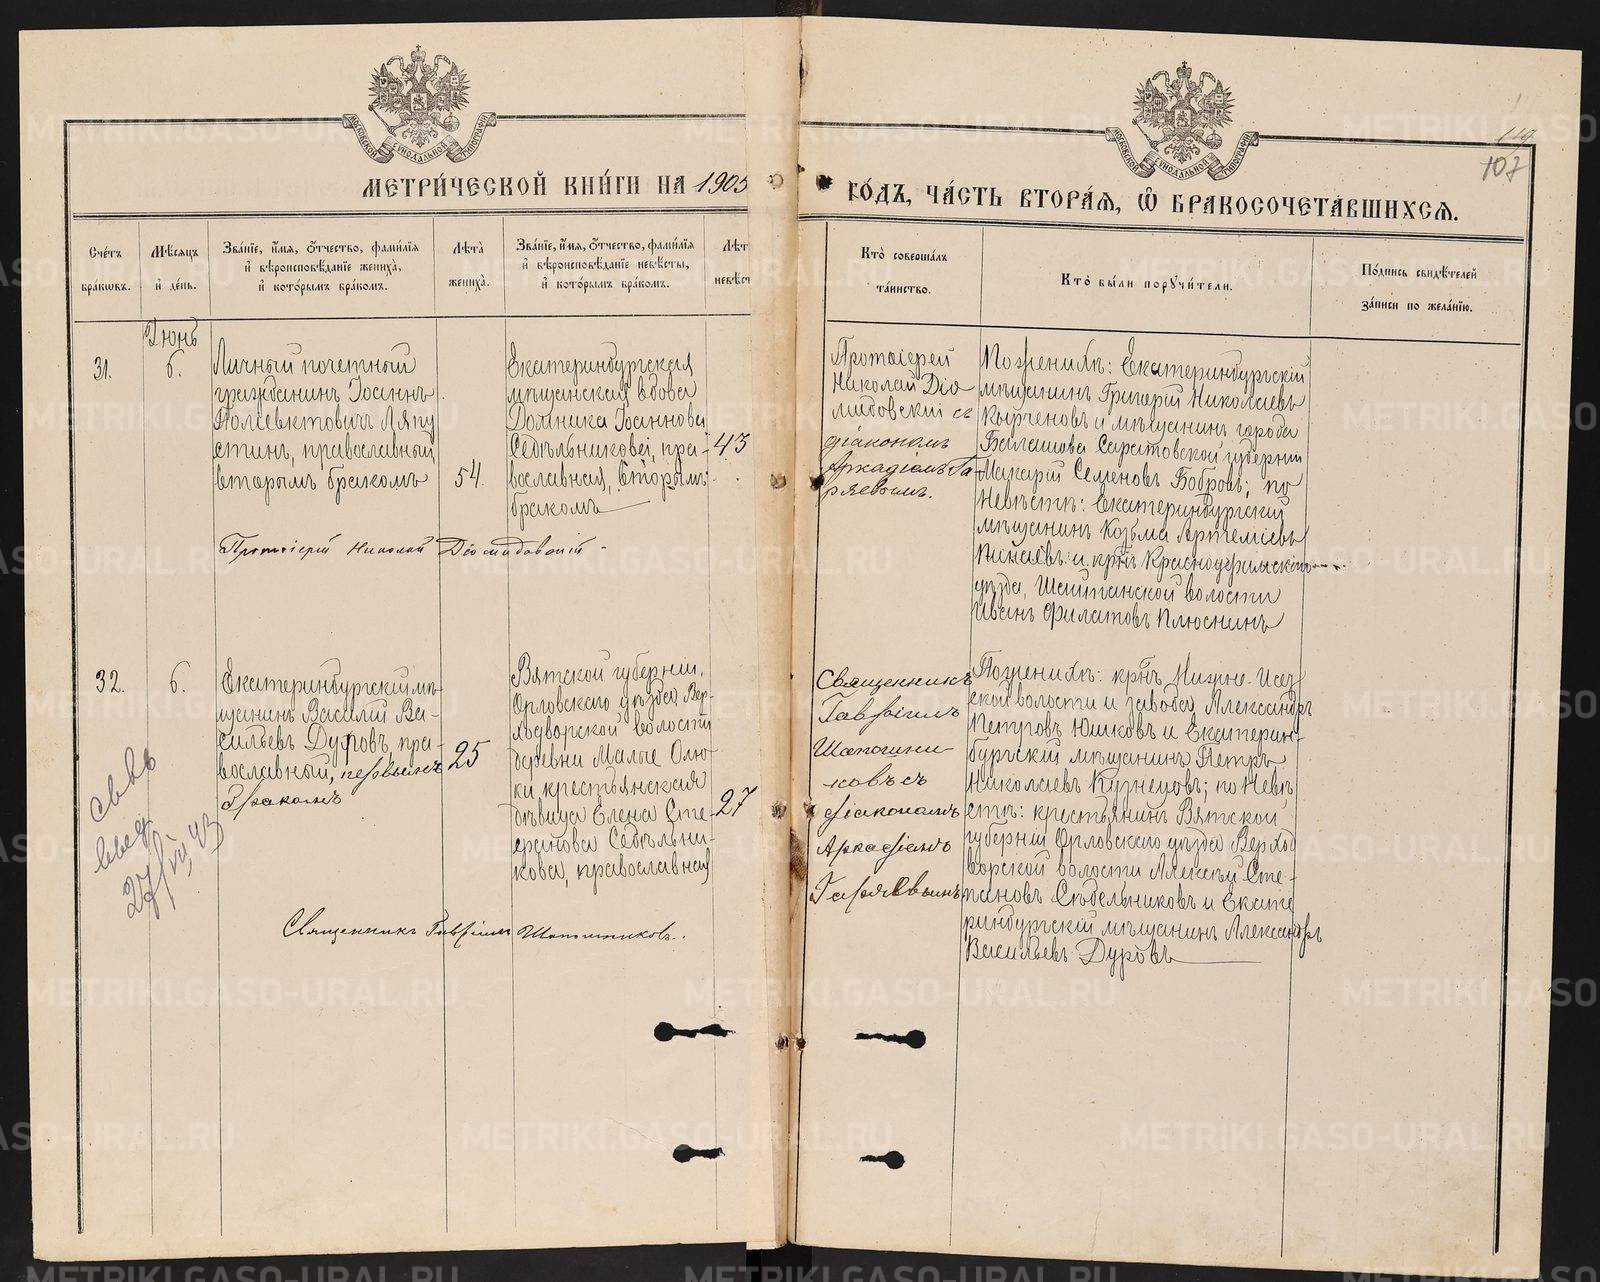 МОСКОВСКОЙ СѴНОДАЛЬНОЙ ТИПОГРАФІИ
МОСКОВСКОЙ СѴНОДАЛЬНОЙ ТИПОГРАФІИ
119
107
МЕТРИ́ЧЕСКОЙ КНИ́ГИ НА 1905
ГО́ДЪ, ЧА́СТЬ ВТОРА́Я, Ѽ БРАКОСОЧЕТА́ВШИХСЯ.
Сче́тъ
бра́кωвъ.
Мѣ́сяцъ
и҆ де́нь.
Зва́нїе, и҆́мя, ѻ҆́тчество, фами́лїя
и҆ вѣроисповѣ́данїе жениха̀,
и҆ кото́рымъ бра́комъ.
Лѣта̀
жениха̀.
Зва́нїе, и҆́мя, ѻ҆́тчество, фами́лїя
и҆ вѣроисповѣ́данїе невѣ́сты,
и҆ кото́рымъ бра́комъ.
Лѣт
невѣ́ст
Кто̀ соверша́лъ
та́инство.
Кто̀ бы́ли порꙋчи́тели.
По́дпись свидѣ́телей
за́писи по жела́нїю.
Іюнь
31.
6.
Личный почетный
гражданинъ Іоаннъ
Поліевктовичъ Ляпу
стинъ, православный,
вторымъ бракомъ
54.
Екатеринбургская
мѣщанская вдова
Домника Іоаннова
Седѣльникова, пра-
вославная, вторымъ
бракомъ
43
Протоіерей
Николай Діо
мидовскій съ
діакономъ
Аркадіемъ Га
ряевымъ.
По женихѣ: Екатеринбургскій
мѣщанинъ Григорій Николаевъ
Кырченовъ и мѣщанинъ города
Балашова Саратовской губерніи
Макарій Семеновъ Бобровъ; по
Невѣстѣ: Екатеринбургскій
мѣщанинъ Козьма Артеміевъ
Пинаевъ и крнъ Красноуфимскаго
уѣзда, Шайтанской волости
Иванъ Филатовъ Плюснинъ
Протоіерей Николай Діомидовскій
32.
6.
Екатеринбургскій мѣ
щанинъ Василій Ва-
сильевъ Дуровъ, пра-
вославный, первымъ
бракомъ
25
Вятской губерніи,
Орловскаго уѣзда, Вер-
ходворской волости
деревни Малые Олю
ки крестьянская
дѣвица Елена Сте-
фанова Седѣльни-
кова, православная
27
Священникъ
Гавріилъ
Шапошни-
ковъ съ
діакономъ
Аркадіемъ
Гаряевымъ
По женихѣ: крнъ Нижне-Исет
ской волости и завода, Александръ
Петровъ Юшковъ и Екатерин-
бургскій мѣщанинъ Петръ
Николаевъ Кузнецовъ; по Невѣ
стѣ: крестьянинъ Вятской
губерніи Орловскаго уѣзда Верход
ворской волости Алексѣй Сте-
пановъ Седельниковъ и Екате
ринбургскій мѣщанинъ Александръ
Васильевъ Дуровъ
Священникъ Гавріилъ Шапошниковъ.
27/VII, 43